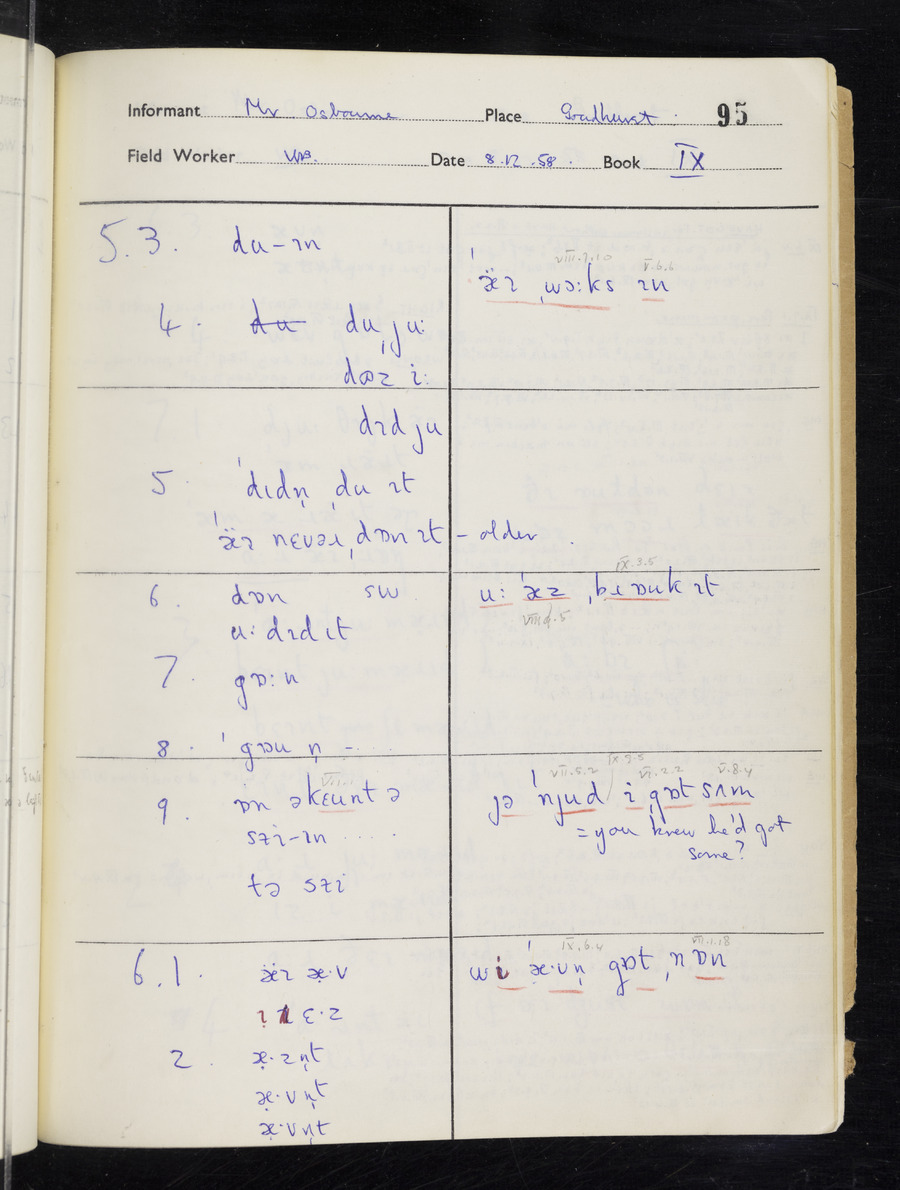 Informant Mr Osbourne Place Goudhurst 95
Field Worker Date 8.12.58. Book IX
5.3. du-ɪn
VIII.7.10 V.6.6
ˈæ̈ɪ ˌwɔ:ks ɪn
4. du ˌju:
dɷz i:
dɪd ju
5. ˈdɪdn̩ ˌdu ɪt
ˈæ̈ɪ nɛvəɹ ˌdɒn ɪt – older
6. dɒn sw
u: dɪd ɪt
IX.3.5
u: ˈæz ˌbɹɒuk ɪt
7. gɒ:n
8. ˈgɒu n̩ – ....
9. ɒn əkɛunt ə
sɪi-ɪn ....
tə sɪi
VII.5.2 IX.9.5 VI.2.2 V.8.4
jə ˈnjud i gɒt sʌm
= you knew he'd got
some?
6.1. æ̈ɪ æ·v
ɪ ɛ·z
IX.6.4 VII.1.18
wi ˈæ·vn̩ gɒt ˌnɒn
2. æ·zn̩t
æ·vn̩t
æ·vn̩t